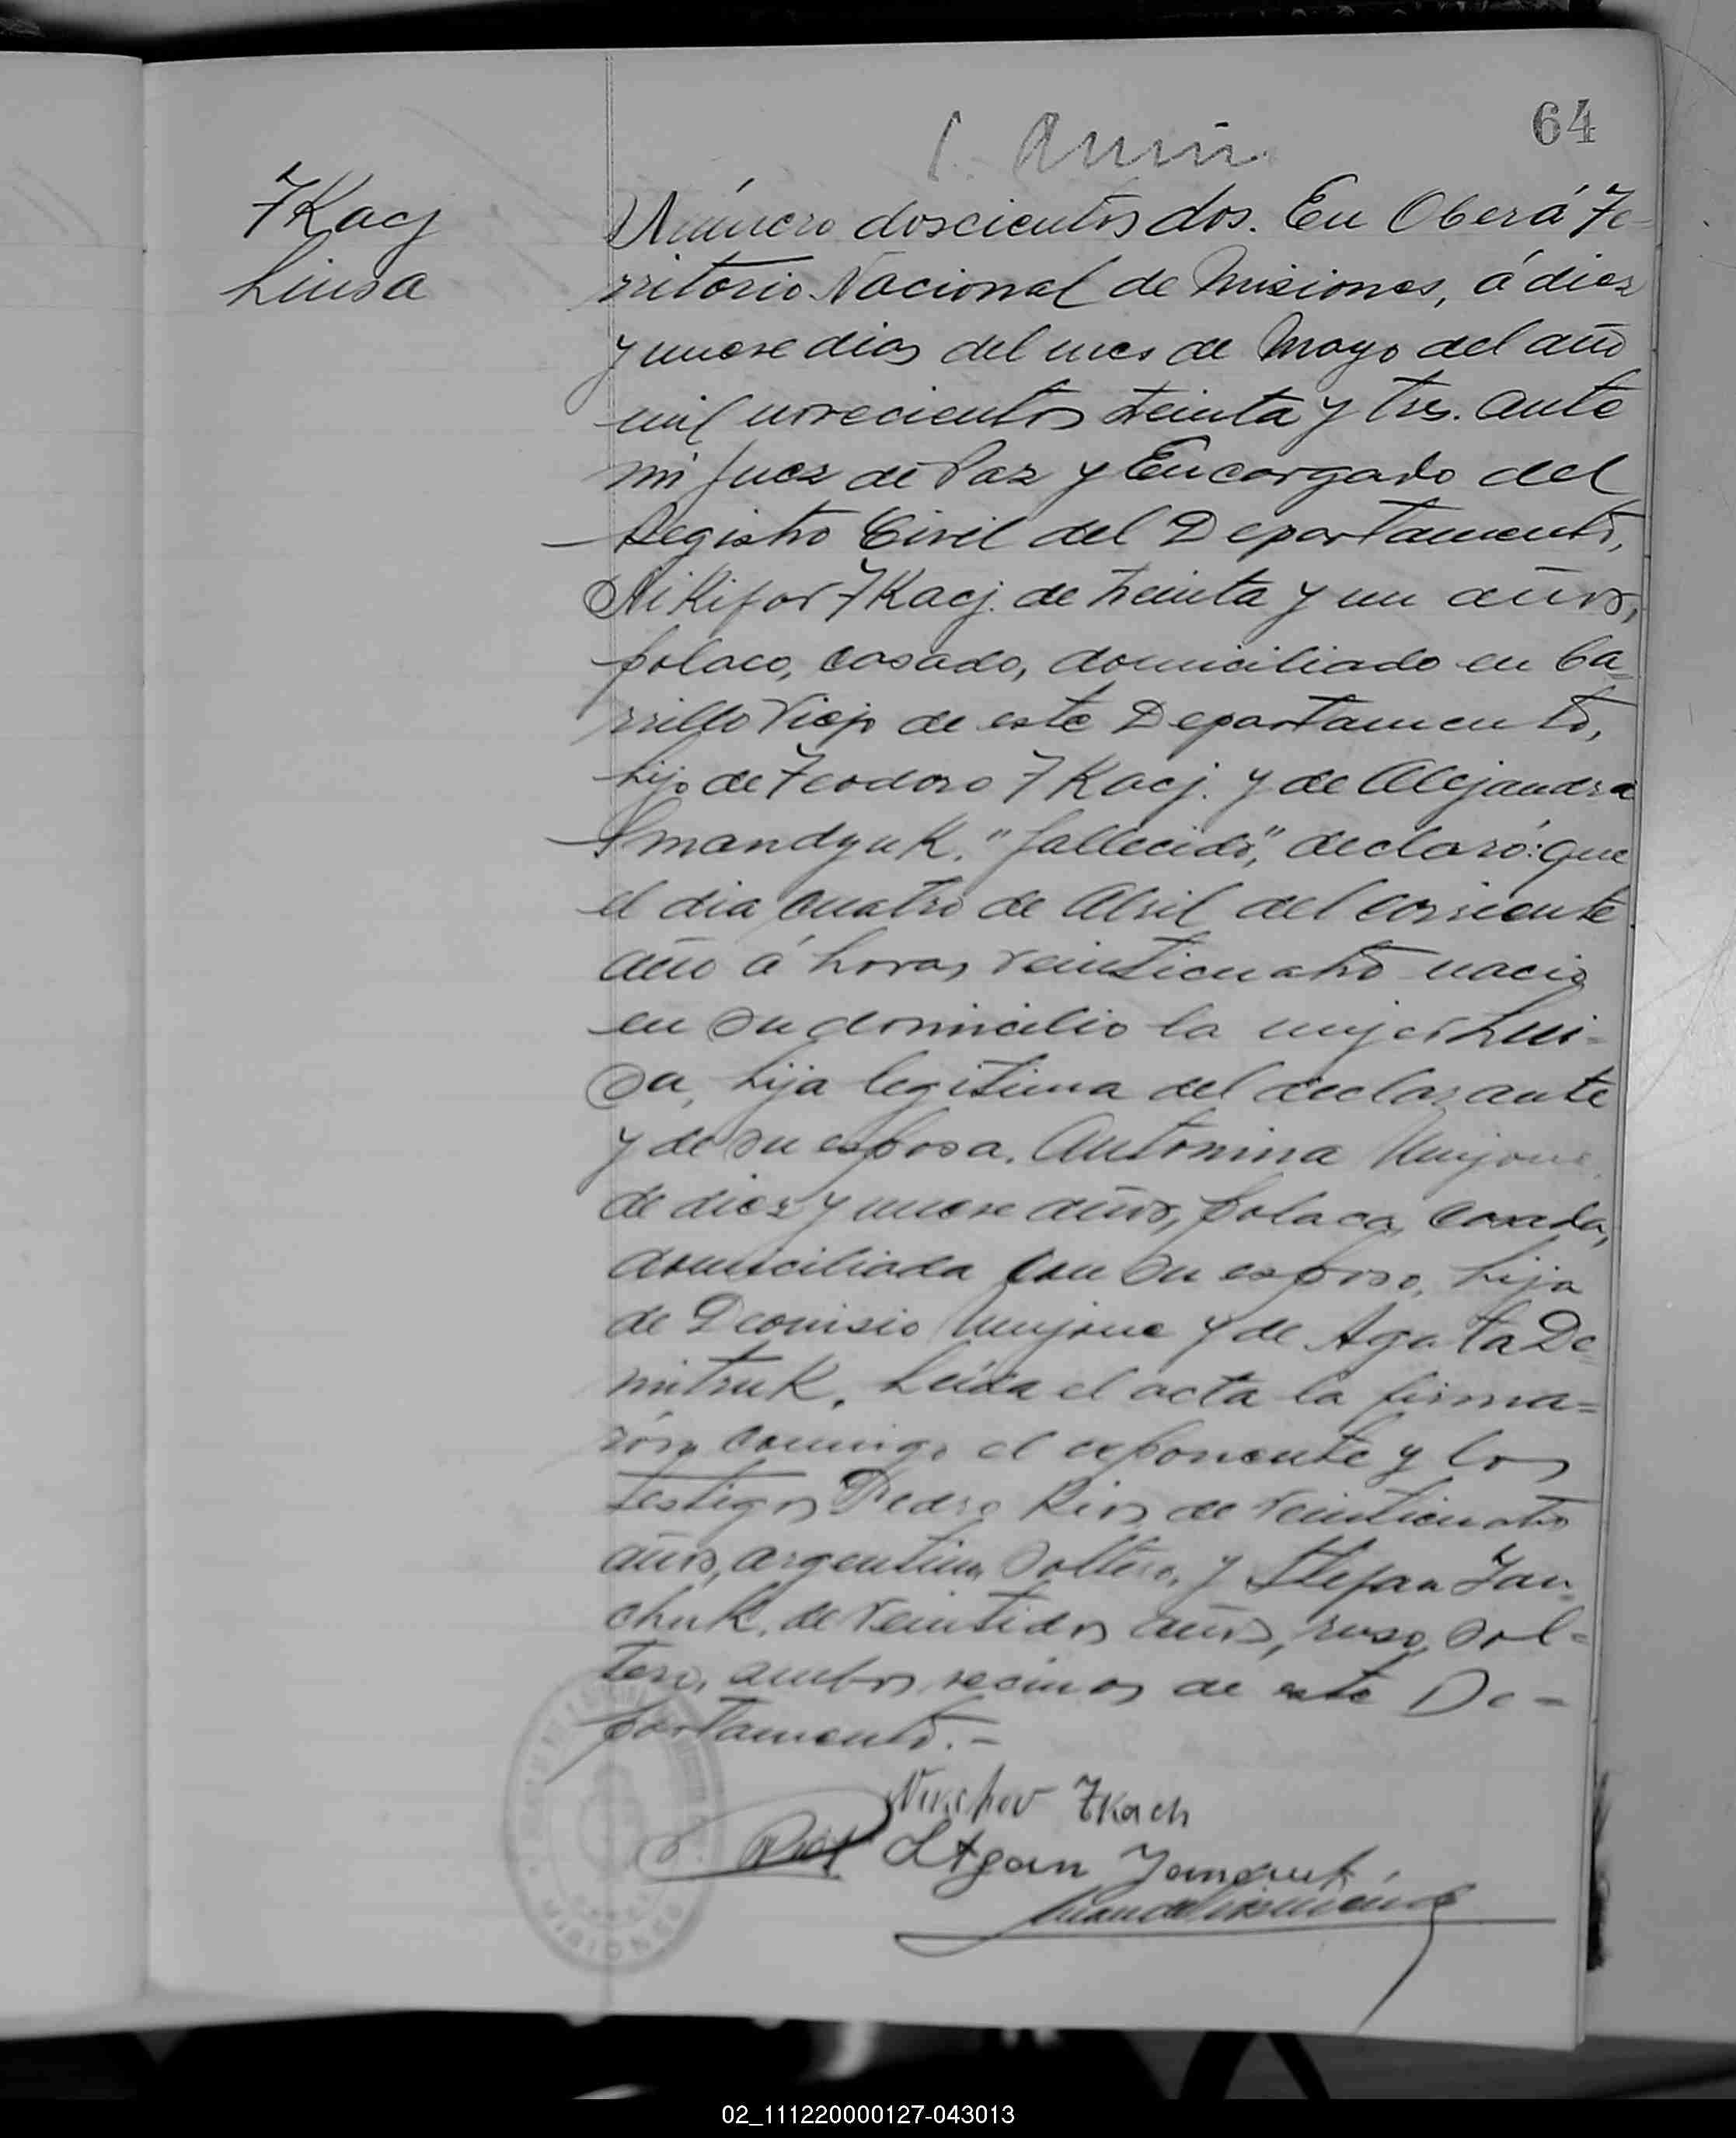 64
Tkacj
Luisa
Número doscientos dos. En Oberá Te-
rritorio Nacional de Misiones, á diez
y nueve dias del mes de Mayo del año
mil novecientos treinta y tres. ante
mi Juez de Paz y Encargado del
Registro Civil del Departamento,
Nikifor Tkacj. de treinta y un años,
polaco, casado, domiciliado en Ca-
rrillo Viejo de este Departamento,
hijo de Teodoro Tkacj. y de Alejandra
Smandyuk. "fallecido", declaró: que
el dia cuatro de Abril del corriente
año á horas veinticuatro nacio
en su domicilio la mujer Lui-
sa, hija legitima del declarante
y de su esposa. Antonina
de diez y nueve años, polaca, casada,
domiciliada con su esposo, hija
de Deonisio y de Agata De-
mitruk. Leida el acta la firma-
rón conmigo el exponente y los
testigos Pedro Rios de veinticuatro
años, argentino, soltero, y Stefan Jan-
chuk. de veintidos años, ruso, sol-
tero, ambos vecinos de este De-
partamento.-
Tkach
MISIONES
02_111220000127-043013